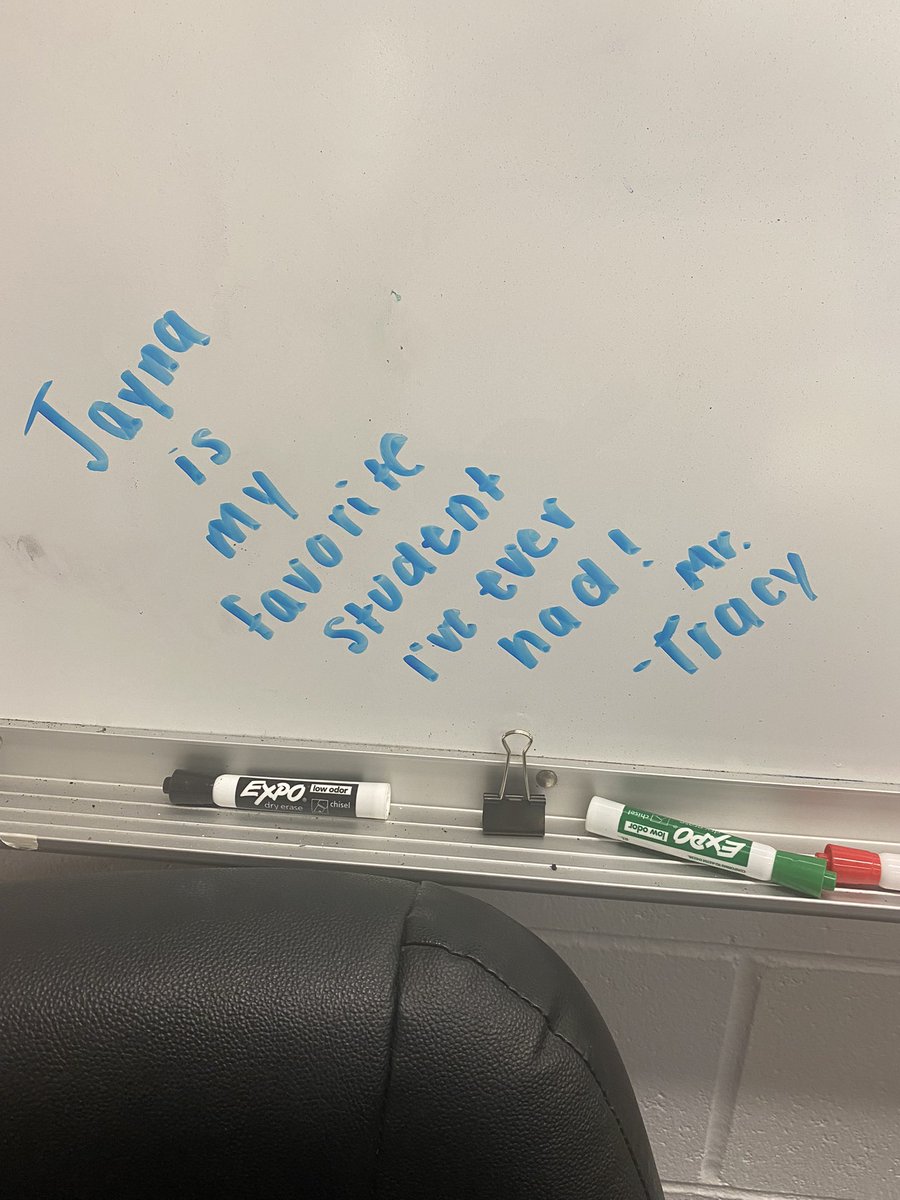 Jayna
is
my
favorite
Student
i've ever
had!
Mr.
-Tracy
EXPO® low odor
dry erase chisel
EXPO low odor
chisel